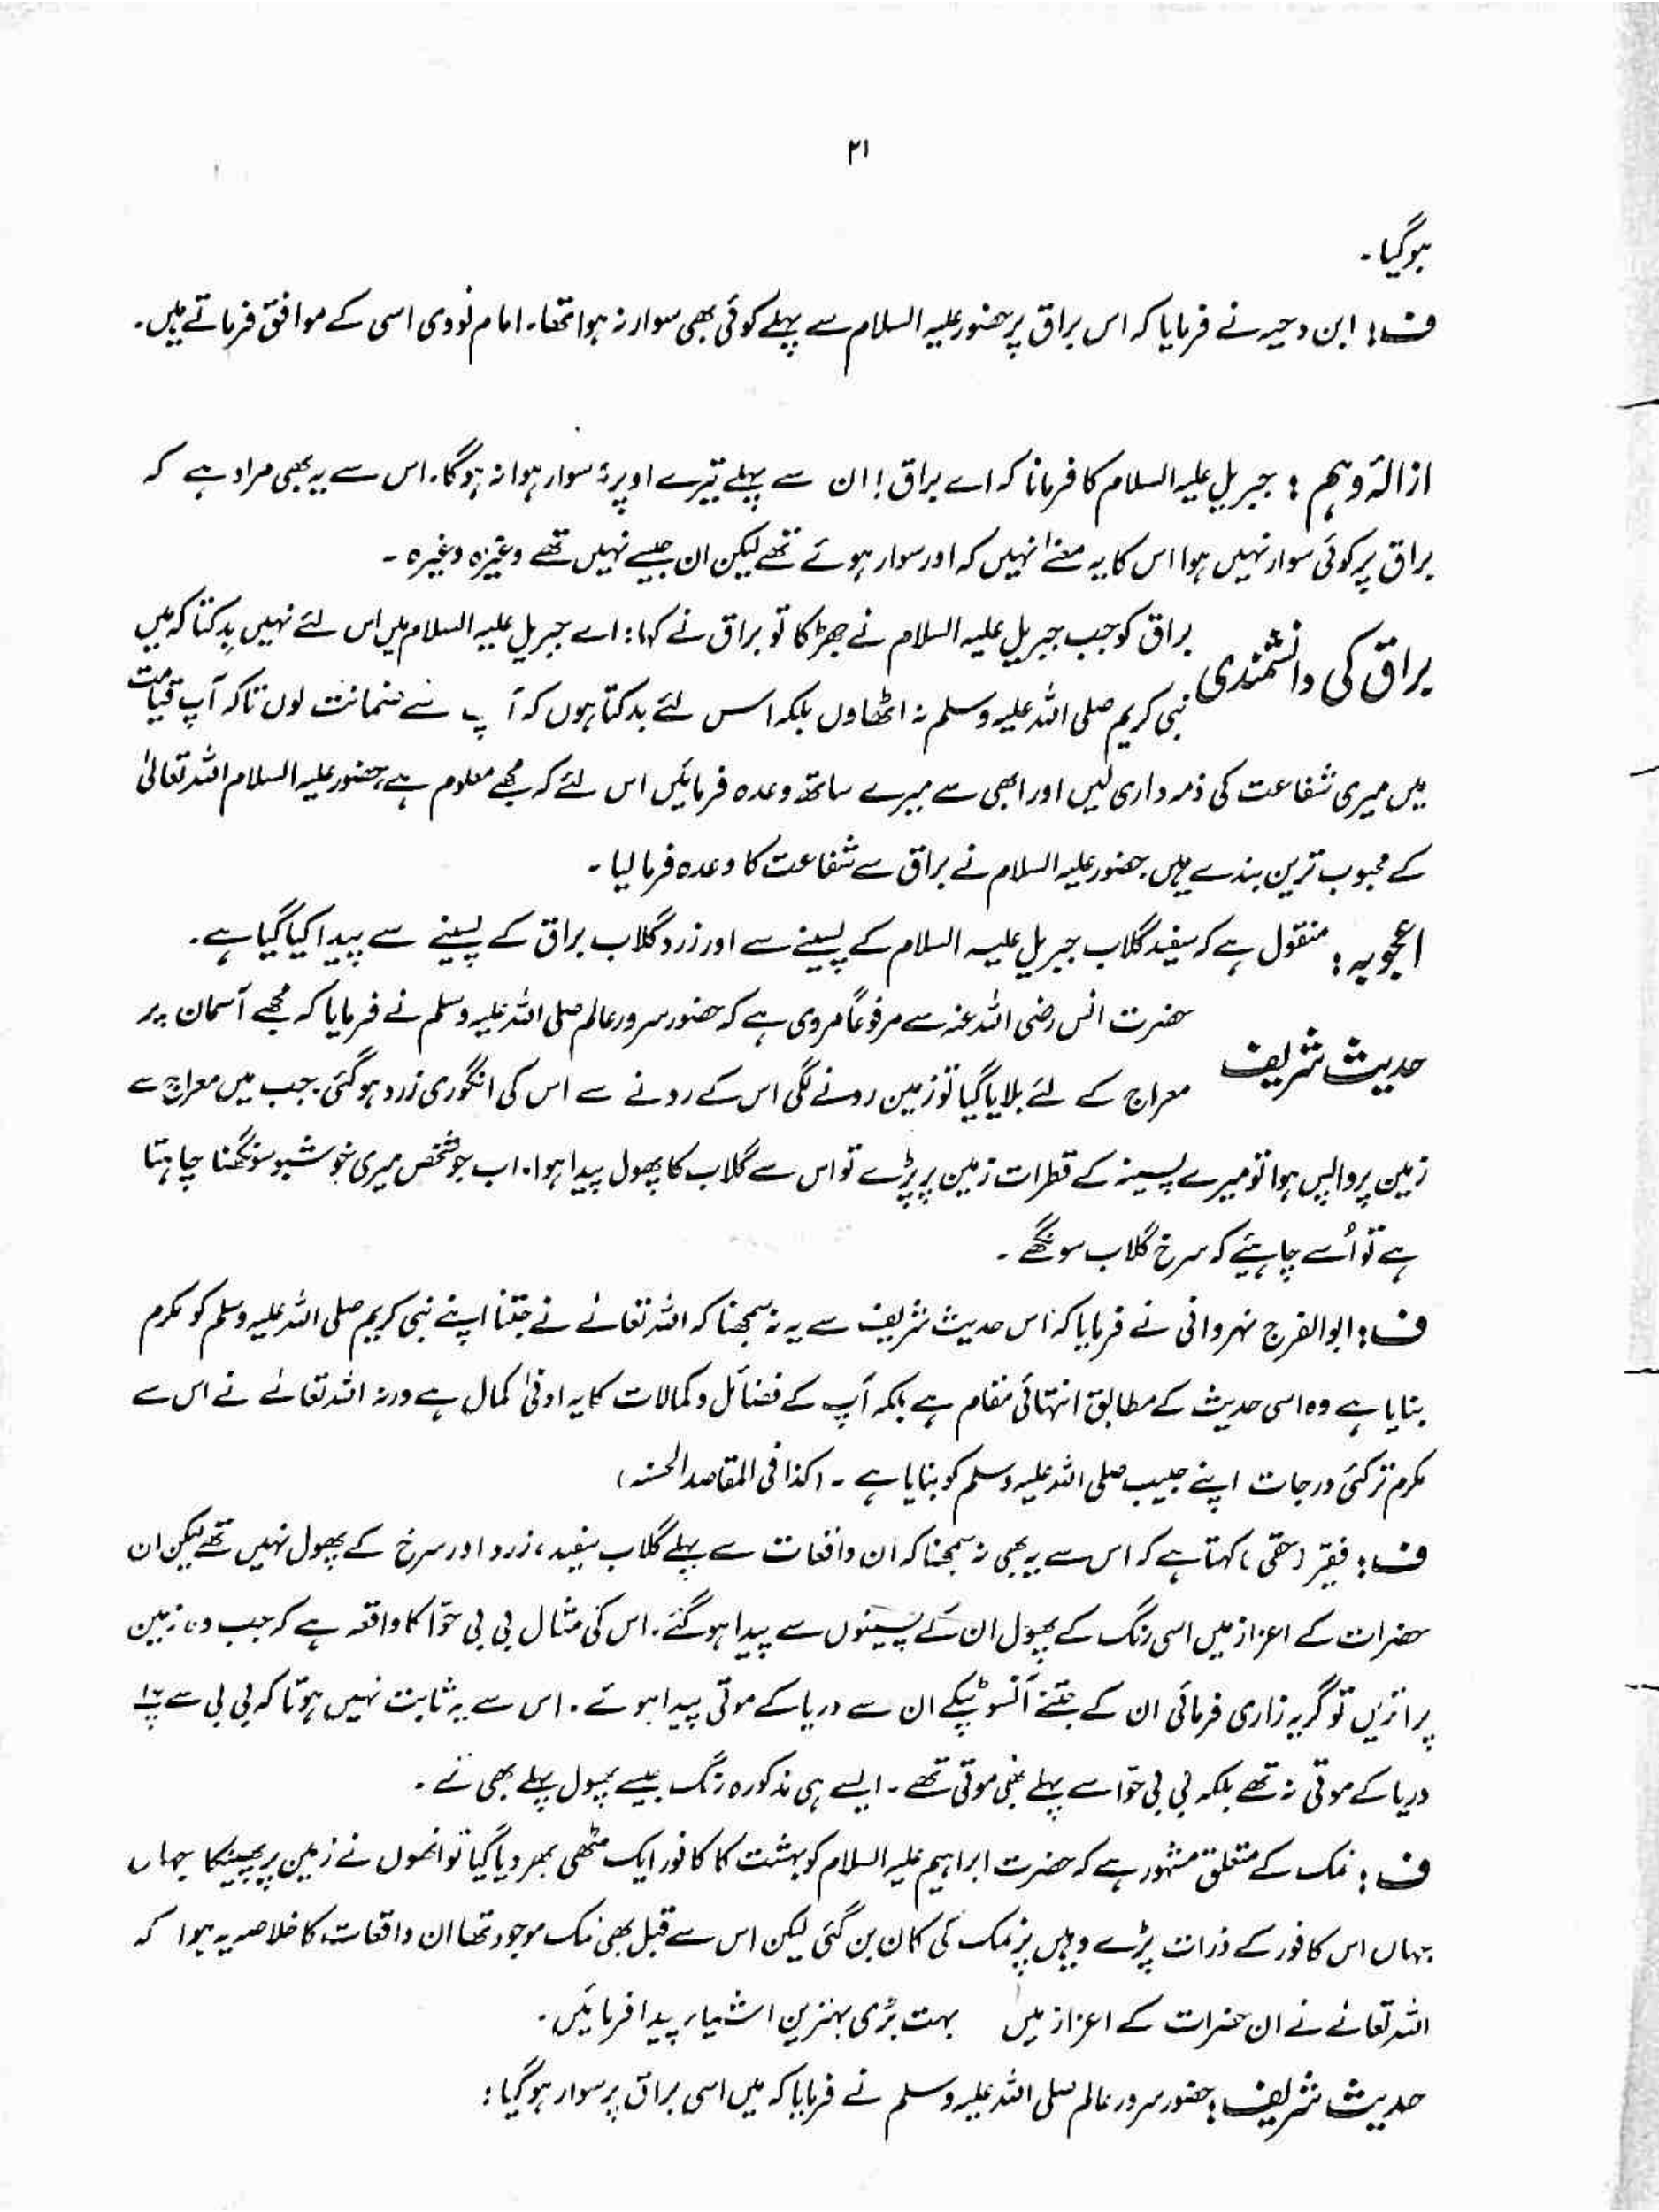 ۲۱
ہوگیا۔
ف: ابن دحیہ نے فرمایا کہ اس براق پر حضور علیہ السلام سے پہلے کوئی بھی سوار نہ ہوا تھا۔ امام نووی اسی کے موافق فرماتے ہیں۔
ازالۂ وہم : جبریل علیہ السلام کا فرمانا کہ اے براق! ان سے پہلے تیرے اوپر نہ سوار ہوا نہ ہوگا۔ اس سے یہ بھی مراد ہے کہ
براق پر کوئی سوار نہیں ہوا اس کا یہ معنےٰ نہیں کہ اور سوار ہوئے تھے لیکن ان جیسے نہیں تھے وغیرہ وغیرہ ۔
براق کی دانشمندی براق کو جب جبریل علیہ السلام نے جھڑکا تو براق نے کہا: اے جبریل علیہ السلام میں اس لئے نہیں بدکتا کہ میں
نبی کریم صلی اللہ علیہ وسلم نہ اٹھاوں بلکہ اس لئے بدکتا ہوں کہ آپ سے ضمانت لوں تاکہ آپ قیامت
میں میری شفاعت کی ذمہ داری لیں اور ابھی سے میرے ساتھ وعدہ فرمائیں اس لئے کہ مجھے معلوم ہے، حضور علیہ السلام اللہ تعالیٰ
کے محبوب ترین بندے ہیں۔ حضور علیہ السلام نے براق سے شفاعت کا وعدہ فرما لیا ۔
اعجوبہ : منقول ہے کہ سفید گلاب جبریل علیہ السلام کے پسینے سے اور زرد گلاب براق کے پسینے سے پیدا کیا گیا ہے۔
حدیث شریف حضرت انس رضی اللہ عنہ سے مرفوعاً مروی ہے کہ حضور سرور عالم صلی اللہ علیہ وسلم نے فرمایا کہ مجھے آسمان پر
معراج کے لئے بلایا گیا تو زمین رونے لگی اس کے رونے سے اس کی انگوری زرد ہوگئی۔ جب میں معراج سے
زمین پر واپس ہوا تو میرے پسینہ کے قطرات زمین پر پڑے تو اس سے گلاب کا پھول پیدا ہوا۔ اب جو شخص میری خوشبو سونگھنا چاہتا
ہے تو اُسے چاہیئے کہ سرخ گلاب سونگھے ۔
ف: ابوالفرج نہروانی نے فرمایا کہ اس حدیث شریف سے یہ نہ سمجھنا کہ اللہ تعالےٰ نے جتنا اپنے نبی کریم صلی اللہ علیہ وسلم کو مکرم
بنایا ہے وہ اسی حدیث کے مطابق انتہائی مقام ہے بلکہ آپ کے فضائل و کمالات کا یہ ادنیٰ کمال ہے ورنہ اللہ تعالےٰ نے اس سے
مکرم تر کئی درجات اپنے حبیب صلی اللہ علیہ وسلم کو بنایا ہے ۔ (کذا فی المقاصد الحسنہ)
ف: فقیر (حقی) کہتا ہے کہ اس سے یہ بھی نہ سمجھنا کہ ان واقعات سے پہلے گلاب سفید، زرد اور سرخ کے پھول نہیں تھے لیکن ان
حضرات کے اعزاز میں اسی رنگ کے پھول ان کے پسینوں سے پیدا ہوگئے۔ اس کی مثال بی بی حوّا کا واقعہ ہے کہ جب وہ زمین
پر اتریں تو گریہ زاری فرمائی ان کے جتنے آنسو ٹپکے ان سے دریا کے موتی پیدا ہوئے۔ اس سے یہ ثابت نہیں ہوتا کہ بی بی سے پہلے
دریا کے موتی نہ تھے بلکہ بی بی حوّا سے پہلے بھی موتی تھے ۔ ایسے ہی مذکورہ رنگ جیسے پھول پہلے بھی تھے ۔
ف: نمک کے متعلق مشہور ہے کہ حضرت ابراہیم علیہ السلام کو بہشت کا کافور ایک مٹھی بھر دیا گیا تو انھوں نے زمین پر پھینکا جہاں
جہاں اس کافور کے ذرات پڑے وہیں پر نمک کی کان بن گئی لیکن اس سے قبل بھی نمک موجود تھا ان واقعات کا خلاصہ یہ ہوا کہ
اللہ تعالےٰ نے ان حضرات کے اعزاز میں بہت بڑی بہترین اشیاء پیدا فرمائیں۔
حدیث شریف : حضور سرور عالم صلی اللہ علیہ وسلم نے فرمایا کہ میں اسی براق پر سوار ہوگیا :